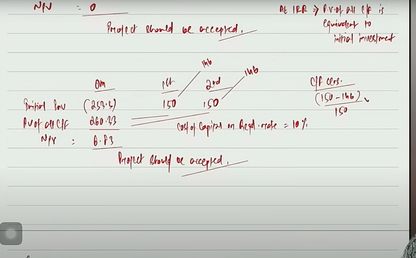 NPV : 0
At IRR → PV of all C/F is
equivalent to
initial investment
Project should be accepted.
146 146
Om 1st 2nd C/F Cers.
Initial Inv (253.5) 150 150 (150-146)
150
PV of all C/F 260.33 Cost of Capital or Reqd. rate = 10%
NPV : 6.83
Project should be accepted.